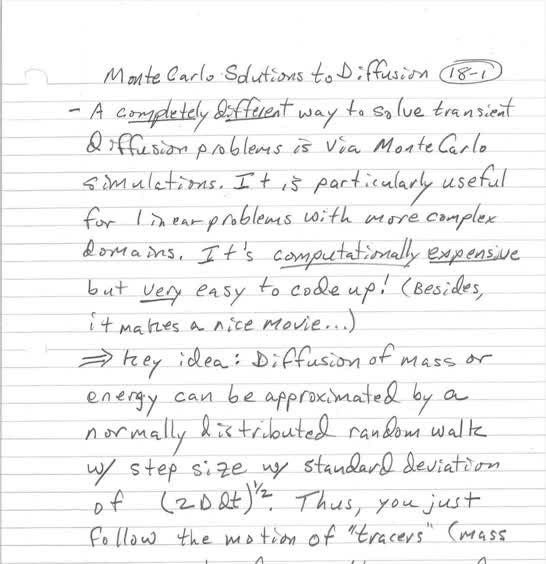 Monte Carlo Solutions to Diffusion 18-1
- A completely different way to solve transient
diffusion problems is via Monte Carlo
simulations. It is particularly useful
for linear problems with more complex
domains. It's computationally expensive
but very easy to code up! (Besides,
it makes a nice movie...)
⇒ key idea: Diffusion of mass or
energy can be approximated by a
normally distributed random walk
w/ step size w/ standard deviation
of (2Ddt)^1/2. Thus, you just
follow the motion of "tracers" (mass